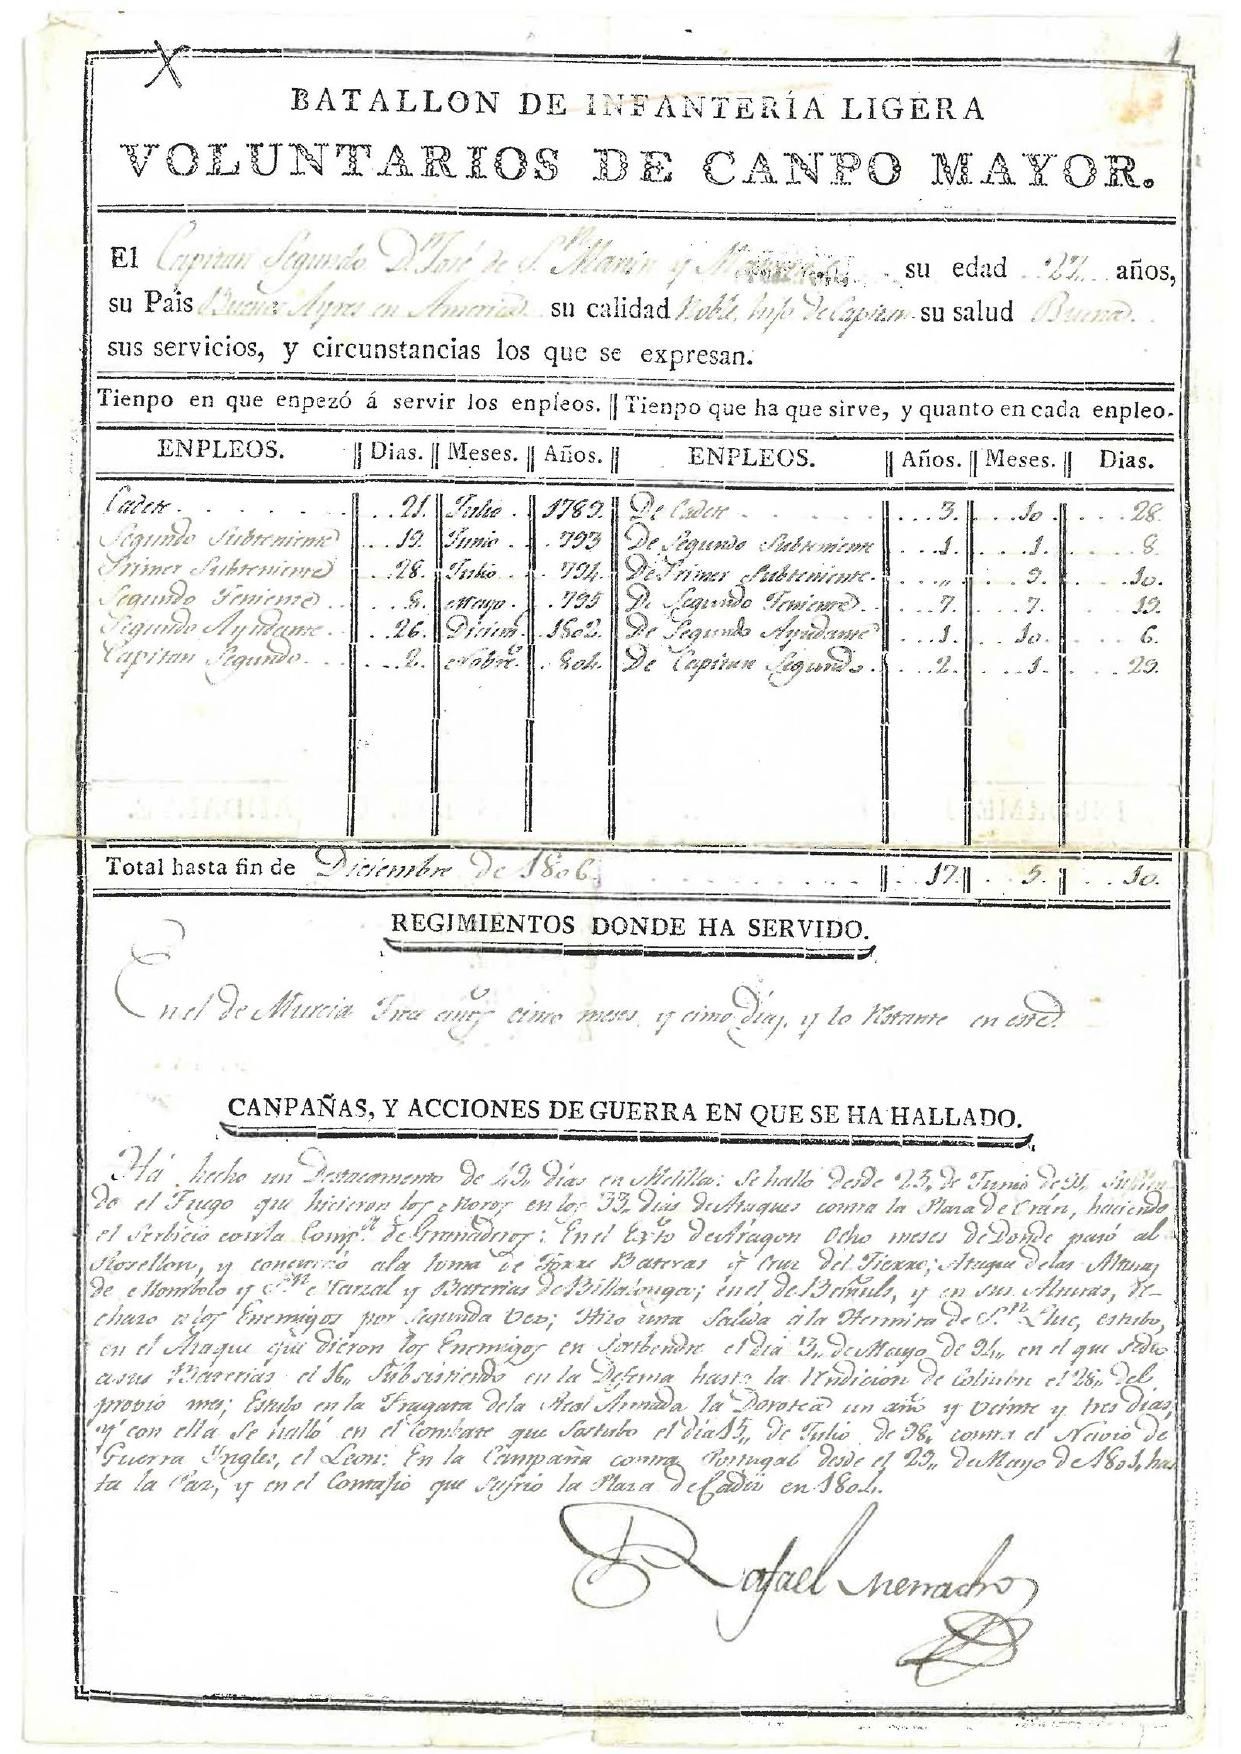 1
X
BATALLON DE INFANTERÍA LIGERA
VOLUNTARIOS DE CANPO MAYOR.
El Capitan Segundo Dn José de Sn Martin y su edad 27 años,
su Pais Buenos Ayres en America su calidad Noble, hijo de Capitan su salud Buena
sus servicios, y circunstancias los que se expresan.
Tienpo en que enpezó á servir los enpleos. Tienpo que ha que sirve, y quanto en cada enpleo.
ENPLEOS. Dias. Meses. Años. ENPLEOS. Años. Meses. Dias.
Cadete 21 Julio 1789 De Cadete 3 10 28
Segundo Subteniente 19 Junio 793 De Segundo Subteniente 1 1 8
Primer Subteniente 28 Julio 794 De Primer Subteniente " 9 10
Segundo Teniente 8 Mayo 795 De Segundo Teniente 7 7 19
Segundo Ayudante 26 Diciem 1802 De Segundo Ayudante 1 10 6
Capitan Segundo 2 Nobre 804 De Capitan Segundo 2 1 29
Total hasta fin de Diciembre de 1806. 17 5 10
REGIMIENTOS DONDE HA SERVIDO.
En el de Murcia Tres años cinco meses, y cinco dias, y lo restante en este
CANPAÑAS, Y ACCIONES DE GUERRA EN QUE SE HA HALLADO.
Há hecho un Destacamento de 49 dias en Melilla: se halló desde 25 de Junio de 91
do el Fuego que hicieron los Moros en los 33 dias de Ataques contra la Plaza de Orán, haciendo
el Serbicio con la Compa de Granaderos: En el Exto de Aragon Ocho meses de Donde pasó al
Rosellon, y concurrió ala toma de Torre Bateras y Cruz del Fierro; Ataque de las Alturas
de Mombolo y Sn Marzal y Baterias de Billalonga; en el de Bañuls, y en sus Alturas, re-
chazo a los Enemigos por segunda vez; Hizo una Salida á la Hermita de Sn Lluc, estubo,
en el Ataque que dieron los Enemigos en Portbendre el dia 3 de Mayo de 94 en el que
a sus Baterias el 16 Subsistiendo en la Defensa hasta la rendicion de Coliubre el 28 del
propio mes; Estubo en la Fragata de la Real Armada la Dorotea un año y veinte y tres dias,
y con ella se halló en el Combate que Sostubo el dia 15 de Julio de 98 contra el Navio de
Guerra Ingles, el Leon: En la Campaña contra Portugal desde el 29 de Mayo de 1801 has
ta la Paz, y en el Contajio que sufrió la Plaza de Cadiz en 1804.
Rafael Menacho